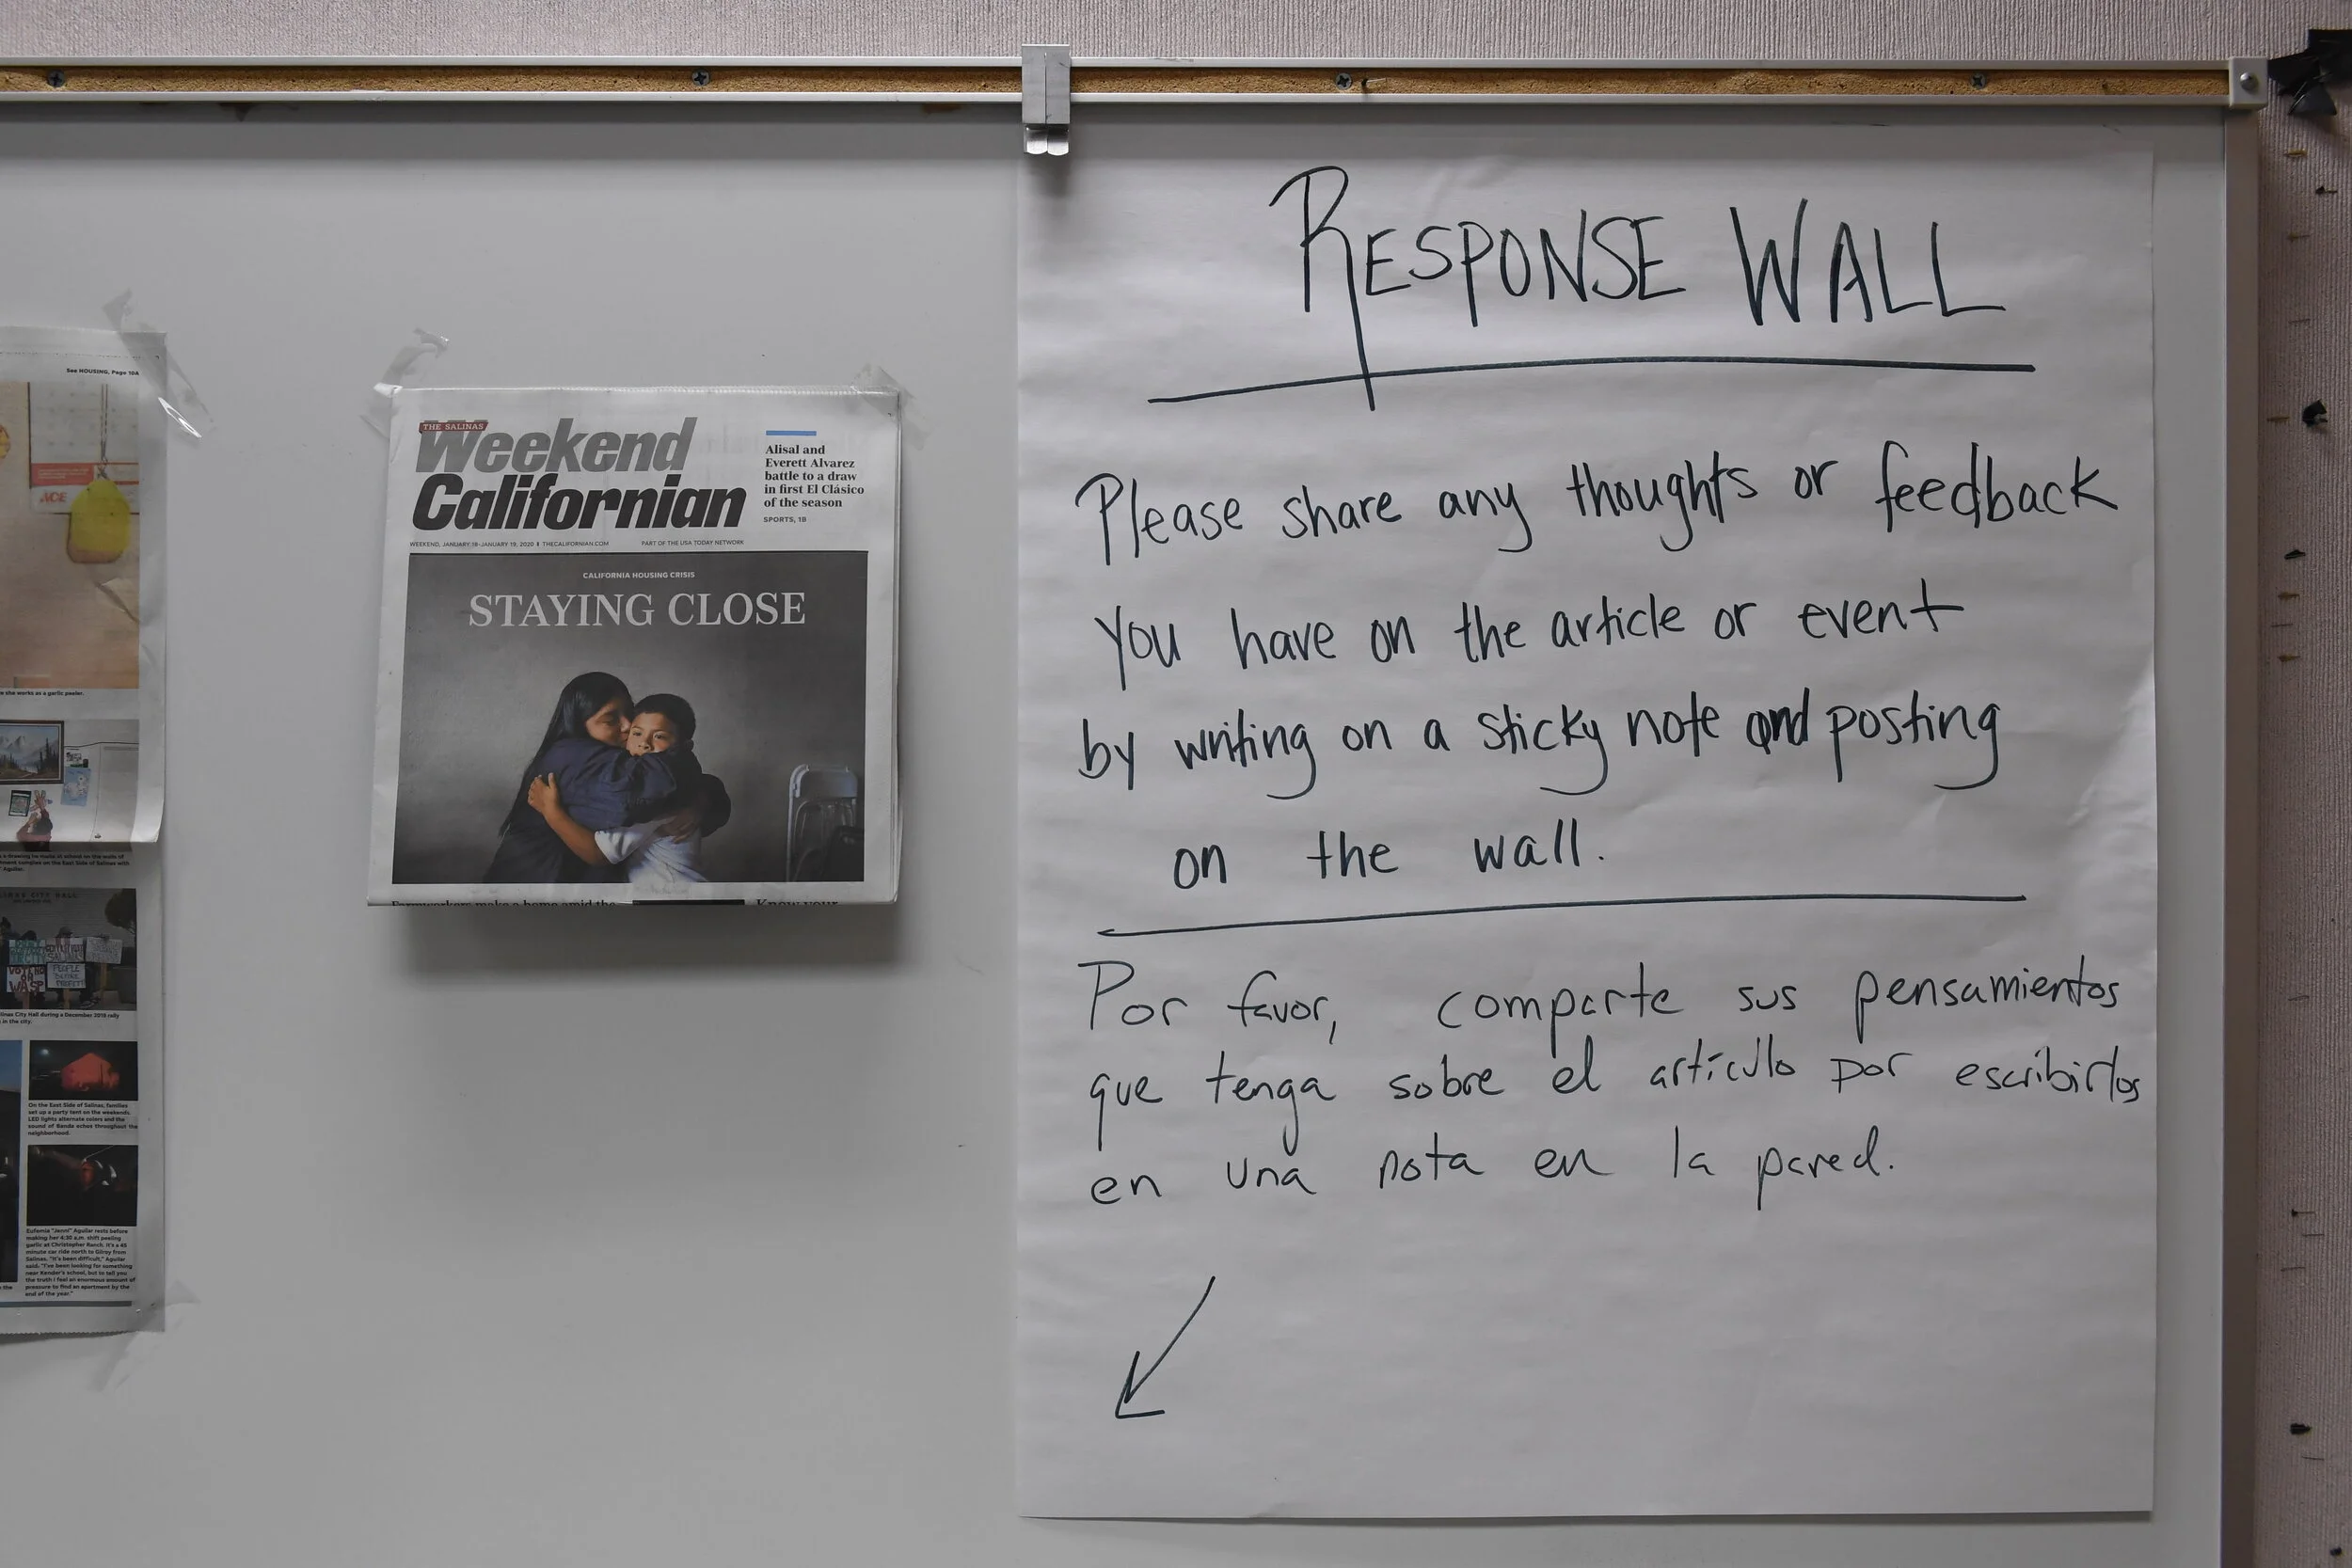 See HOUSING, Page 10A
ACE
e she works as a garlic peeler.
VOTE NO
ON
WASP
PEOPLE
BEFORE
PROFIT
linas City Hall during a December 2019 rally
in the city.
On the East Side of Salinas, families
set up a party tent on the weekends.
LED lights alternate colors and the
sound of Banda echos throughout the
neighborhood.
Eufemia "Jenni" Aguilar rests before
making her 4:30 a.m. shift peeling
garlic at Christopher Ranch. It's a 45
minute car ride north to Gilroy from
Salinas. "It's been difficult," Aguilar
said. "I've been looking for something
near Kender's school, but to tell you
the truth I feel an enormous amount of
pressure to find an apartment by the
end of the year."
THE SALINAS
Weekend
Californian
Alisal and
Everett Alvarez
battle to a draw
in first El Clásico
of the season
SPORTS, 1B
WEEKEND, JANUARY 18-JANUARY 19, 2020 | THECALIFORNIAN.COM PART OF THE USA TODAY NETWORK
CALIFORNIA HOUSING CRISIS
STAYING CLOSE
Farmworkers make a home amid the
Know your
RESPONSE WALL
Please share any thoughts or feedback
you have on the article or event
by writing on a sticky note and posting
on the wall.
Por favor, comparte sus pensamientos
que tenga sobre el artículo por escribirlos
en una nota en la pared.